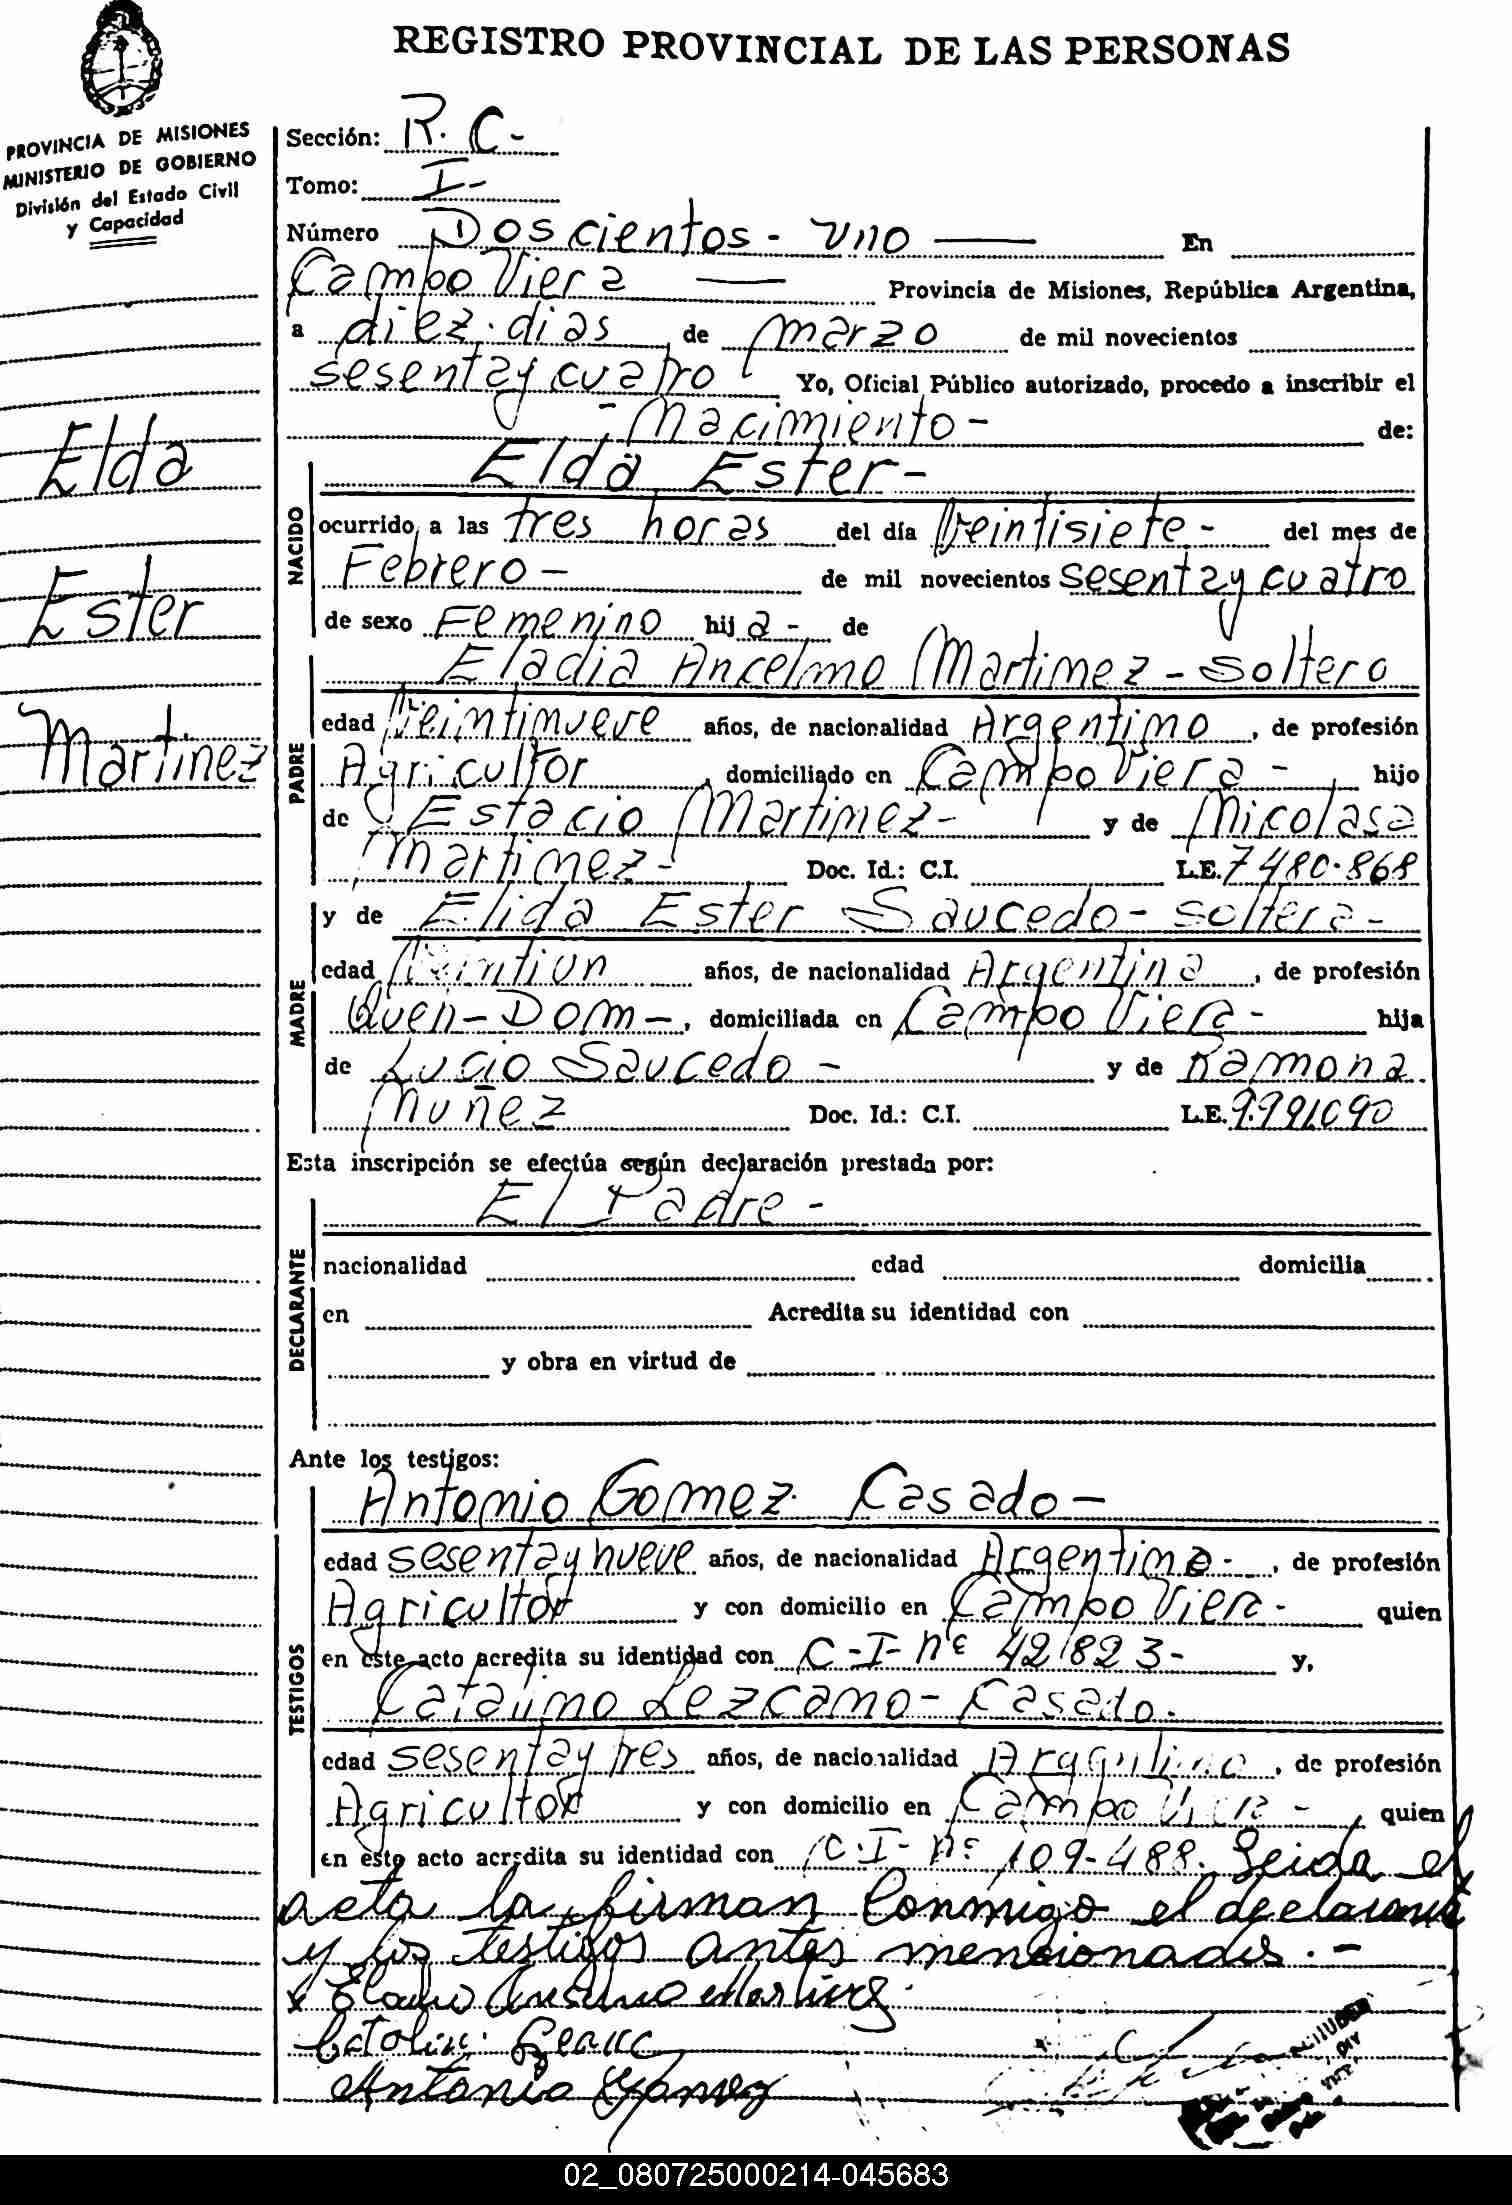 REGISTRO PROVINCIAL DE LAS PERSONAS
PROVINCIA DE MISIONES
MINISTERIO DE GOBIERNO
División del Estado Civil
y Capacidad
Elda
Ester
Martinez
Sección: R. C-
Tomo: I-
Número Doscientos - uno — En
Campo Viera — Provincia de Misiones, República Argentina,
a diez. dias de marzo de mil novecientos
sesentaycuatro Yo, Oficial Público autorizado, procedo a inscribir el
- Nacimiento - de:
NACIDO
Elda Ester-
ocurrido a las tres horas del día Veintisiete - del mes de
Febrero - de mil novecientos sesentaycuatro
de sexo Femenino hija - de
PADRE
Eladia Ancelmo Martinez - soltero
edad Veintinueve años, de nacionalidad Argentino, de profesión
Agricultor, domiciliado en Campo Viera - hijo
de Estacio Martinez - y de Nicolasa
Martinez - Doc. Id.: C.I. L.E. 7480.868
MADRE
y de Elida Ester Saucedo - soltera -
edad Veintiun años, de nacionalidad Argentina, de profesión
Quen - Dom -, domiciliada en Campo Viera - hija
de Lucio Saucedo - y de Ramona.
Muñez Doc. Id.: C.I. L.E. 9.991.090
Esta inscripción se efectúa según declaración prestada por:
DECLARANTE
El Padre -
nacionalidad edad domicilia
en Acredita su identidad con
y obra en virtud de
Ante los testigos:
TESTIGOS
Antonio Gomez. Casado -
edad sesentaynueve años, de nacionalidad Argentino -, de profesión
Agricultor y con domicilio en Campo Viera - quien
en este acto acredita su identidad con C-I- nº 421823- y,
Catalino Lezcano - Casado.
edad sesentaytres años, de nacionalidad, de profesión
Agricultor y con domicilio en Campo Viera - quien
en este acto acredita su identidad con C.I- nº 109-488. Leida el
acta la firman Conmigo el declarante
y los testigos antes mencionados. -
x Eladio Anselmo Martinez
Antonio Gomez
02_080725000214-045683